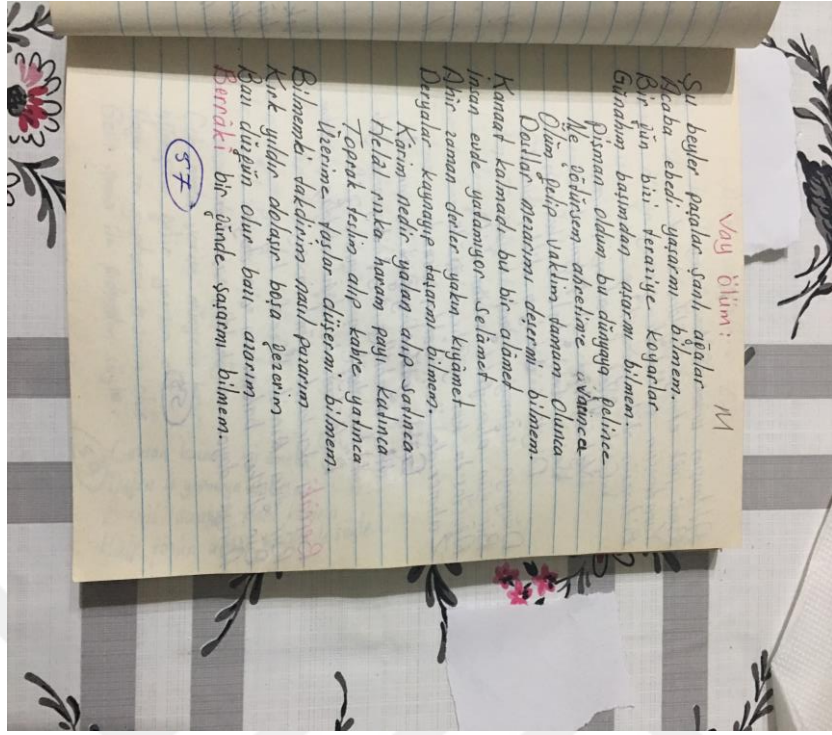 Vay ölüm: M
Şu beyler paşalar şanlı ağalar
Acaba ebedi yaşarmı bilmem.
Bir gün bizi teraziye koyarlar
Günahım başımdan aşarmı bilmem.
Pişman oldum bu dünyaya gelince
Ne götürsem ahretime varınca
Ölüm gelip vaktim tamam olunca
Dostlar mezarımı deşermi bilmem.
Kanaat kalmadı bu bir alâmet
İnsan evde yatamıyor selâmet
Ahir zaman derler yakın kıyâmet
Deryalar kaynayıp taşarmı bilmem.
Karim nedir yalan alıp satınca
Helâl rızka haram payı katınca
Toprak teslim alıp kabre yatınca
Üzerime taşlar düşermi bilmem.
Bilmemki takdirim nasıl pazarım
Kırk yıldır dolaşır boşa gezerim
Bazı düzgün olur bazı azarım
Berraki bir günde şaşarmı bilmem.
57